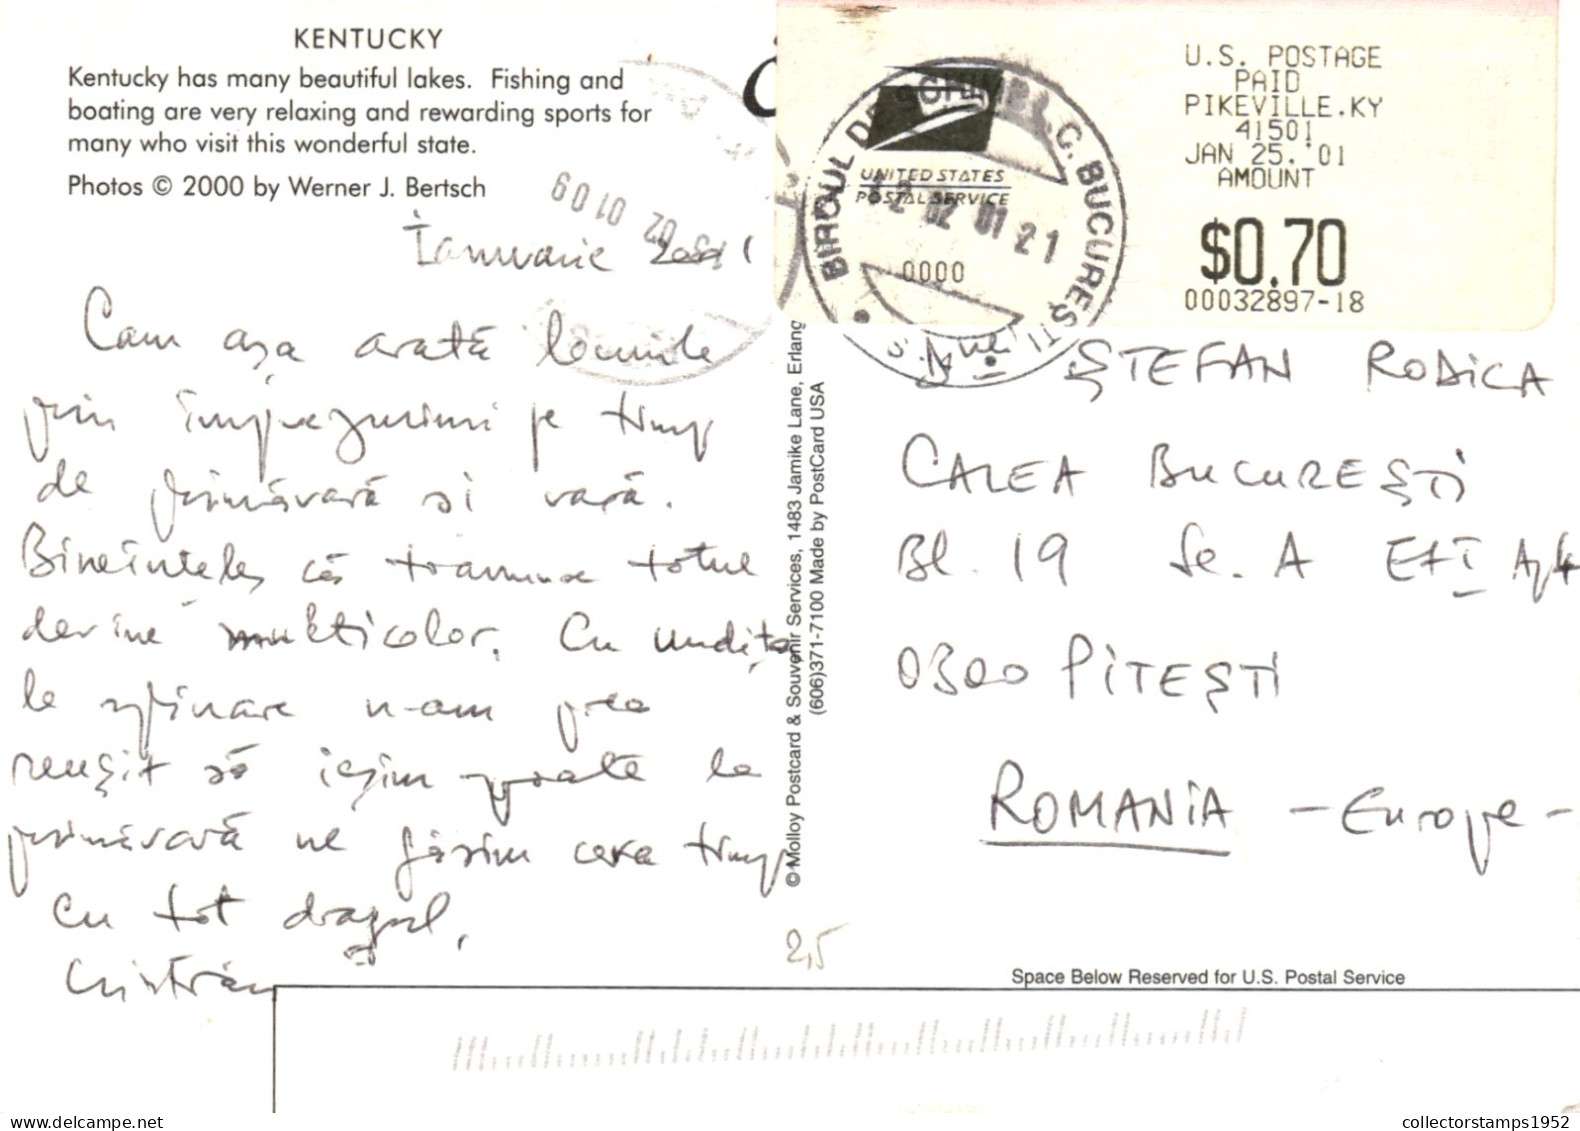 KENTUCKY
Kentucky has many beautiful lakes. Fishing and
boating are very relaxing and rewarding sports for
many who visit this wonderful state.
Photos © 2000 by Werner J. Bertsch
Ianuarie 2001
Cam așa arată locurile
prin împrejurimi pe timp
de primăvară și vară.
Bineînțeles că toamna totul
devine multicolor. Cu undița
la
n-am prea
reușit să ieșim poate la
primăvară ne găsim ceva timp
cu tot dragul,
Cristian
U.S. POSTAGE
PAID
PIKEVILLE.KY
41501
JAN 25.'01
AMOUNT
$0.70
00032897-18
UNITED STATES
POSTAL SERVICE
0000
BIROUL DE
C. BUCUREȘTI
12 02 01 21
02 01 09
© Molloy Postcard & Souvenir Services, 1483 Jamike Lane, Erlang
(606)371-7100 Made by PostCard USA
ȘTEFAN RODICA
CALEA BUCUREȘTI
Bl. 19 Sc. A ET I Ap 4
0300 PITEȘTI
ROMANIA - Europe -
2,5
Space Below Reserved for U.S. Postal Service
www.delcampe.net
collectorstamps1952